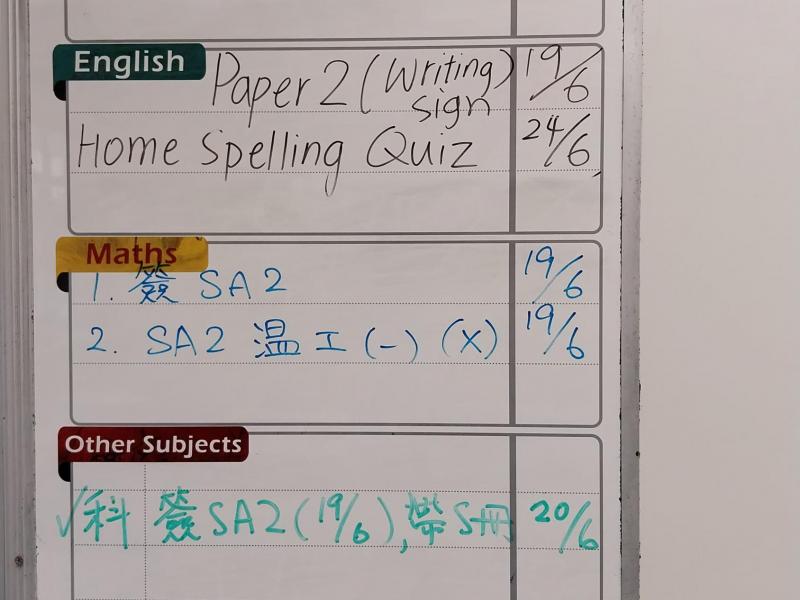 English
Paper 2 (Writing) 19/6
sign
Home Spelling Quiz 24/6
Maths
1. 簽 SA2 19/6
2. SA2 溫工(一) (X) 19/6
Other Subjects
√科 簽SA2(19/6), 帶S冊 20/6